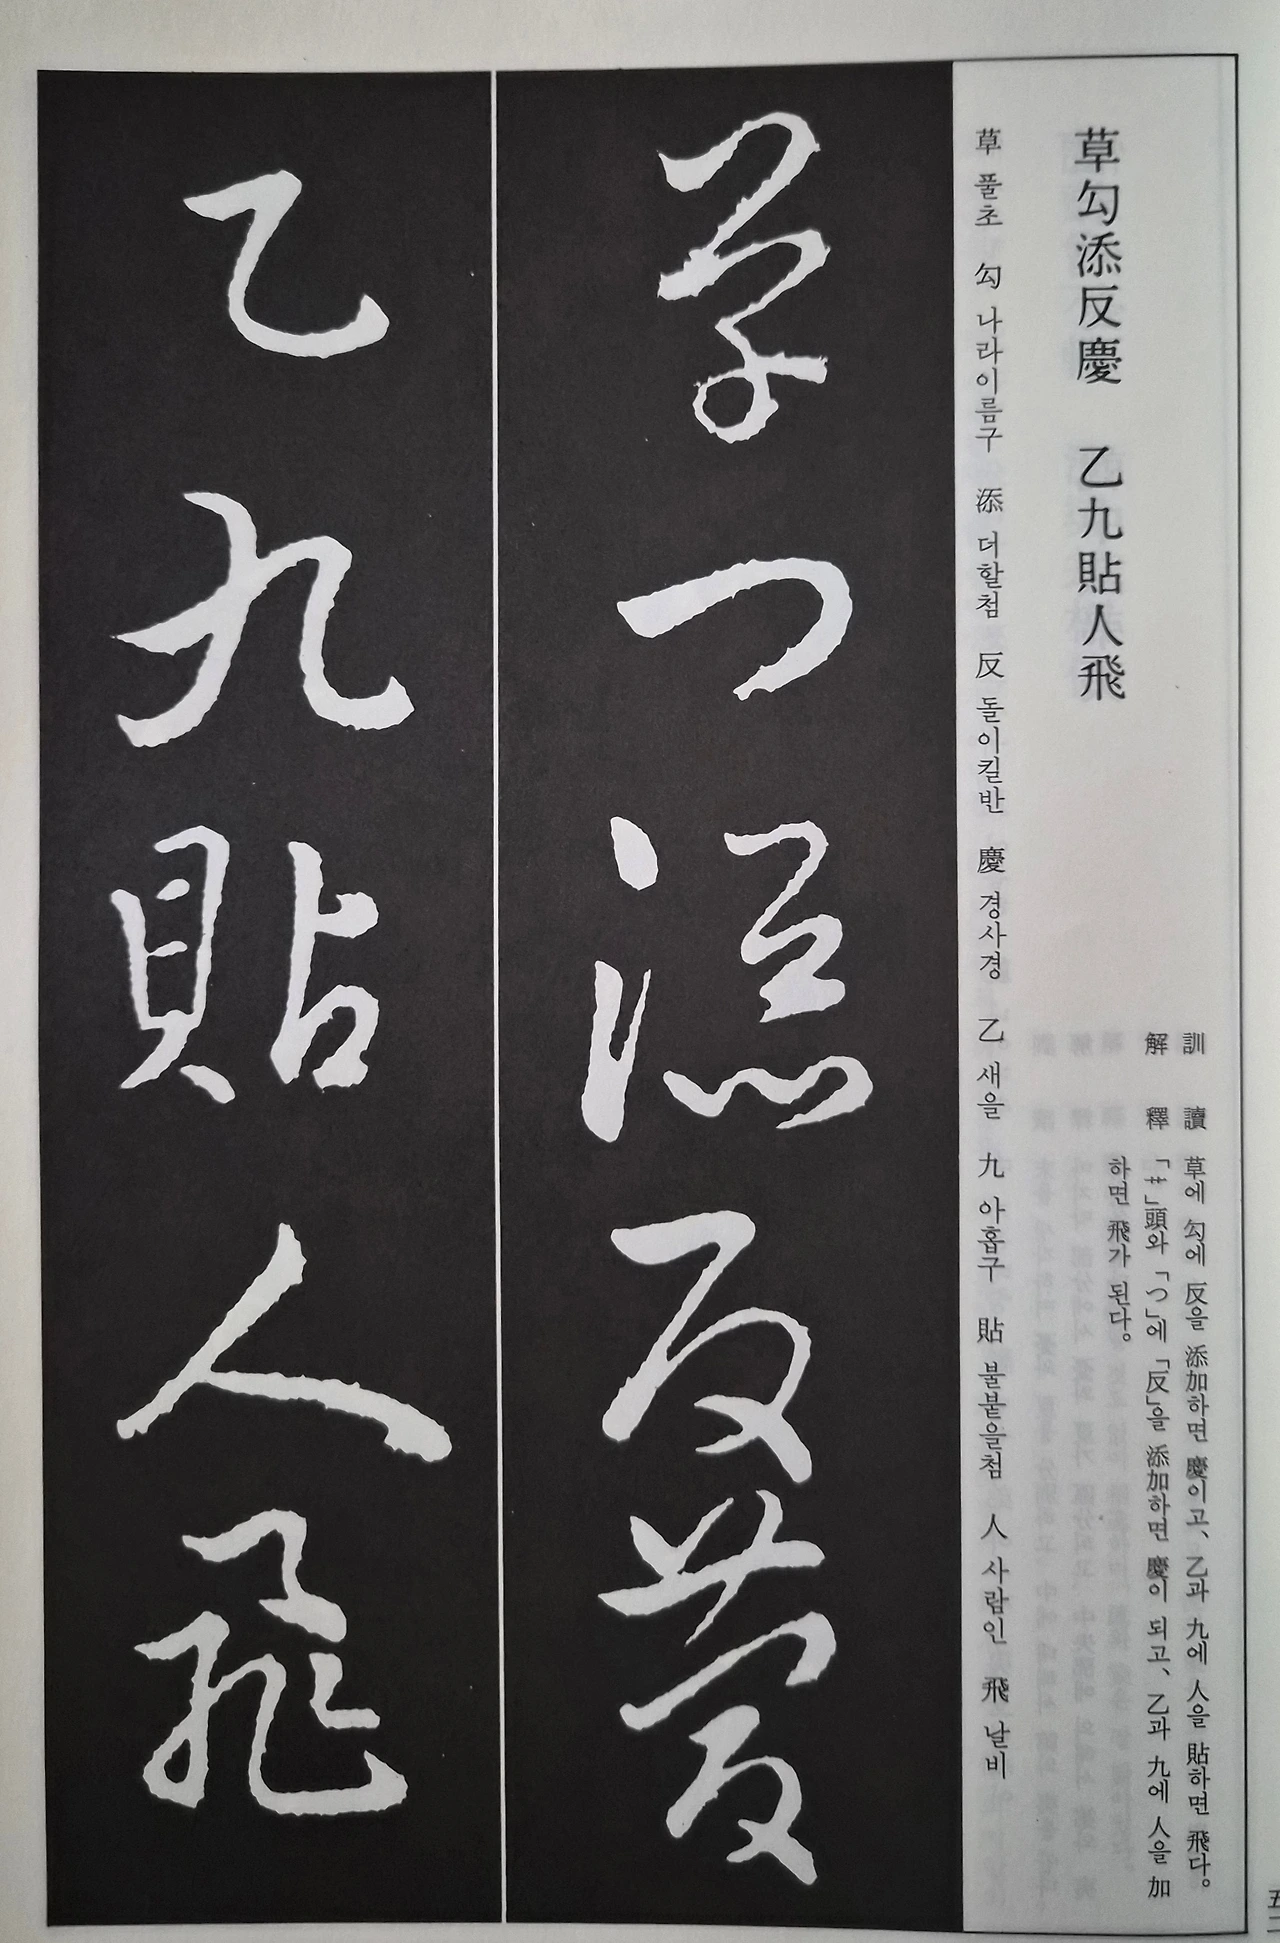 草勾添反慶 乙九貼人飛
訓讀 草에 勾에 反을 添加하면 慶이고、乙과 九에 人을 貼하면 飛다。
解釋 「艹」頭와 「つ」에 「反」을 添加하면 慶이 되고、乙과 九에 人을 加
하면 飛가 된다。
草 풀초 勾 나라이름구 添 더할첨 反 돌이킬반 慶 경사경 乙 새을 九 아홉구 貼 붙붙을첨 人 사람인 飛 날비
草勾添反慶
乙九貼人飛